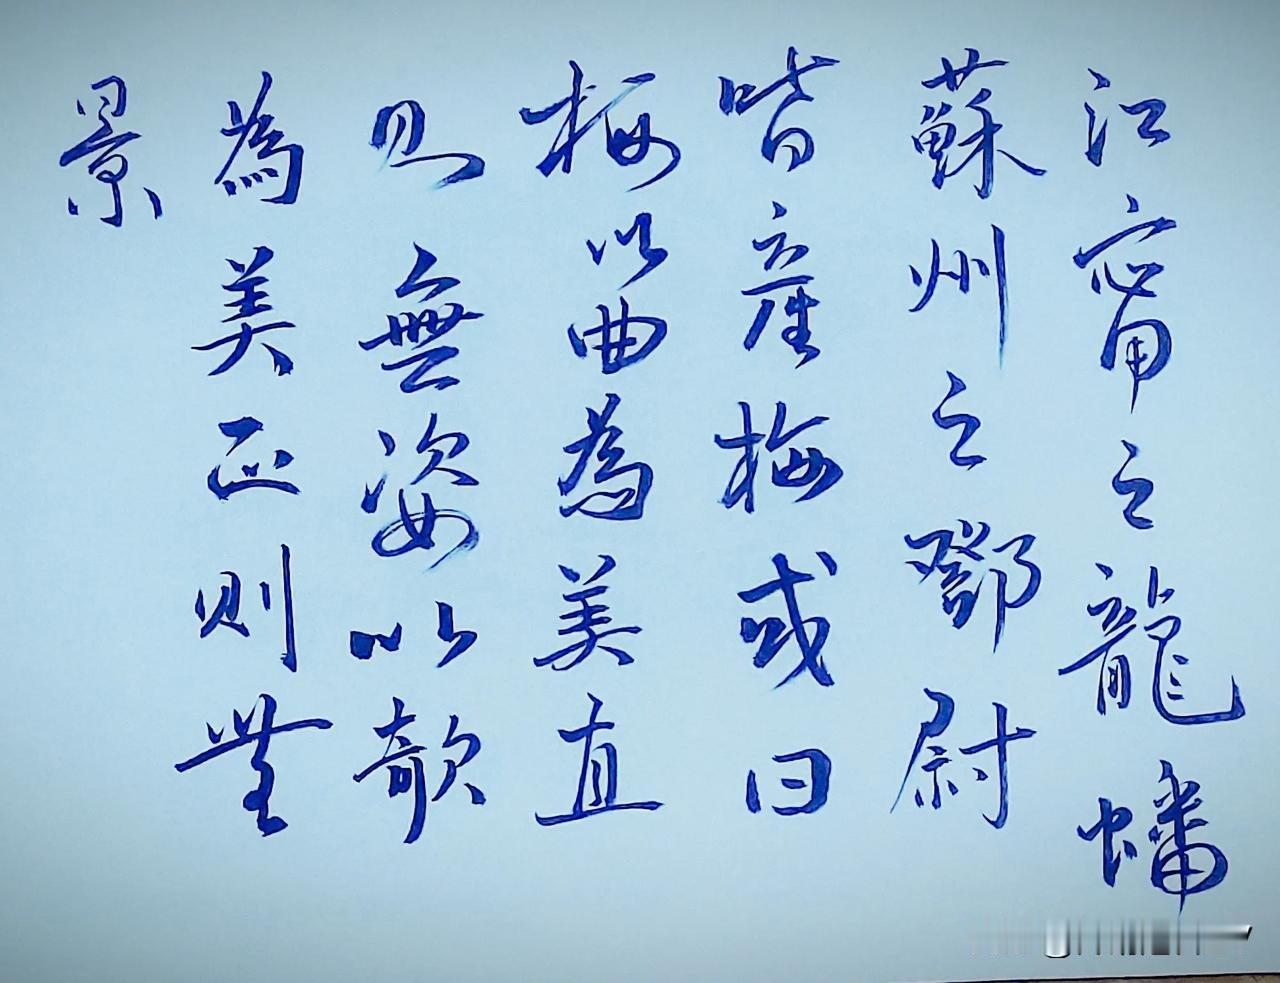 江甯之龍蟠
蘇州之鄧尉
皆產梅或曰
梅以曲為美直
無姿以欹
為美正则無
景